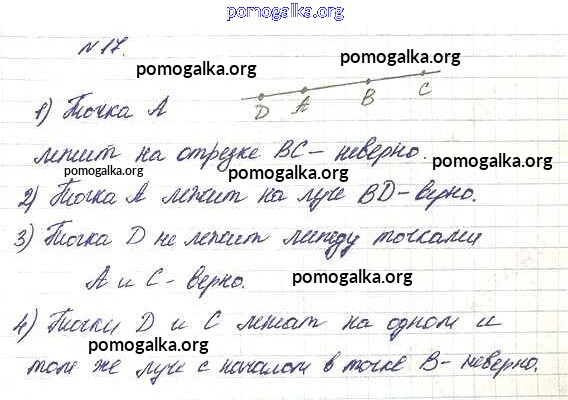 pomogalka.org
№ 17.
pomogalka.org
pomogalka.org
D A B C
1) Точка А
pomogalka.org
лежит на отрезке ВС – неверно.
pomogalka.org
pomogalka.org
pomogalka.org
2) Точка А лежит на луче BD – верно.
3) Точка D не лежит между точками
А и С – верно.
pomogalka.org
4) Точки D и С лежат на одном и
pomogalka.org
том же луче с началом в точке В – неверно.
pomogalka.org